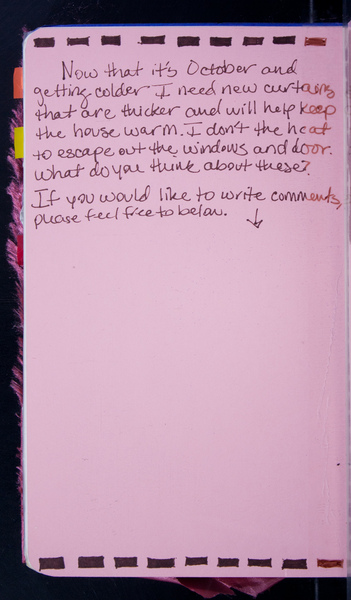 Now that it's October and
getting colder I need new curtains
that are thicker and will help keep
the house warm. I don't the heat
to escape out the windows and door.
What do you think about these?
If you would like to write comments,
please feel free to below.